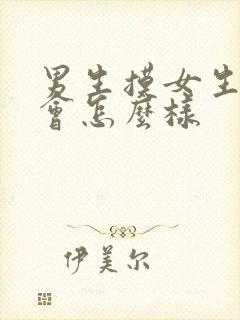 男生摸女生
會怎麼樣
伊美尔